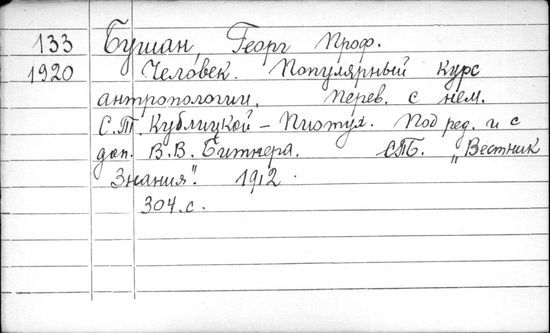 133 Бушан, Георг Проф.
1920 Человек. Популярный курс
антропологии. Перев. с нем.
С.Т. Кублицкой-Пиотух. Под ред. и с
доп. В.В. Битнера. СПБ. „Вестник
Знания". 1912.
304.с.